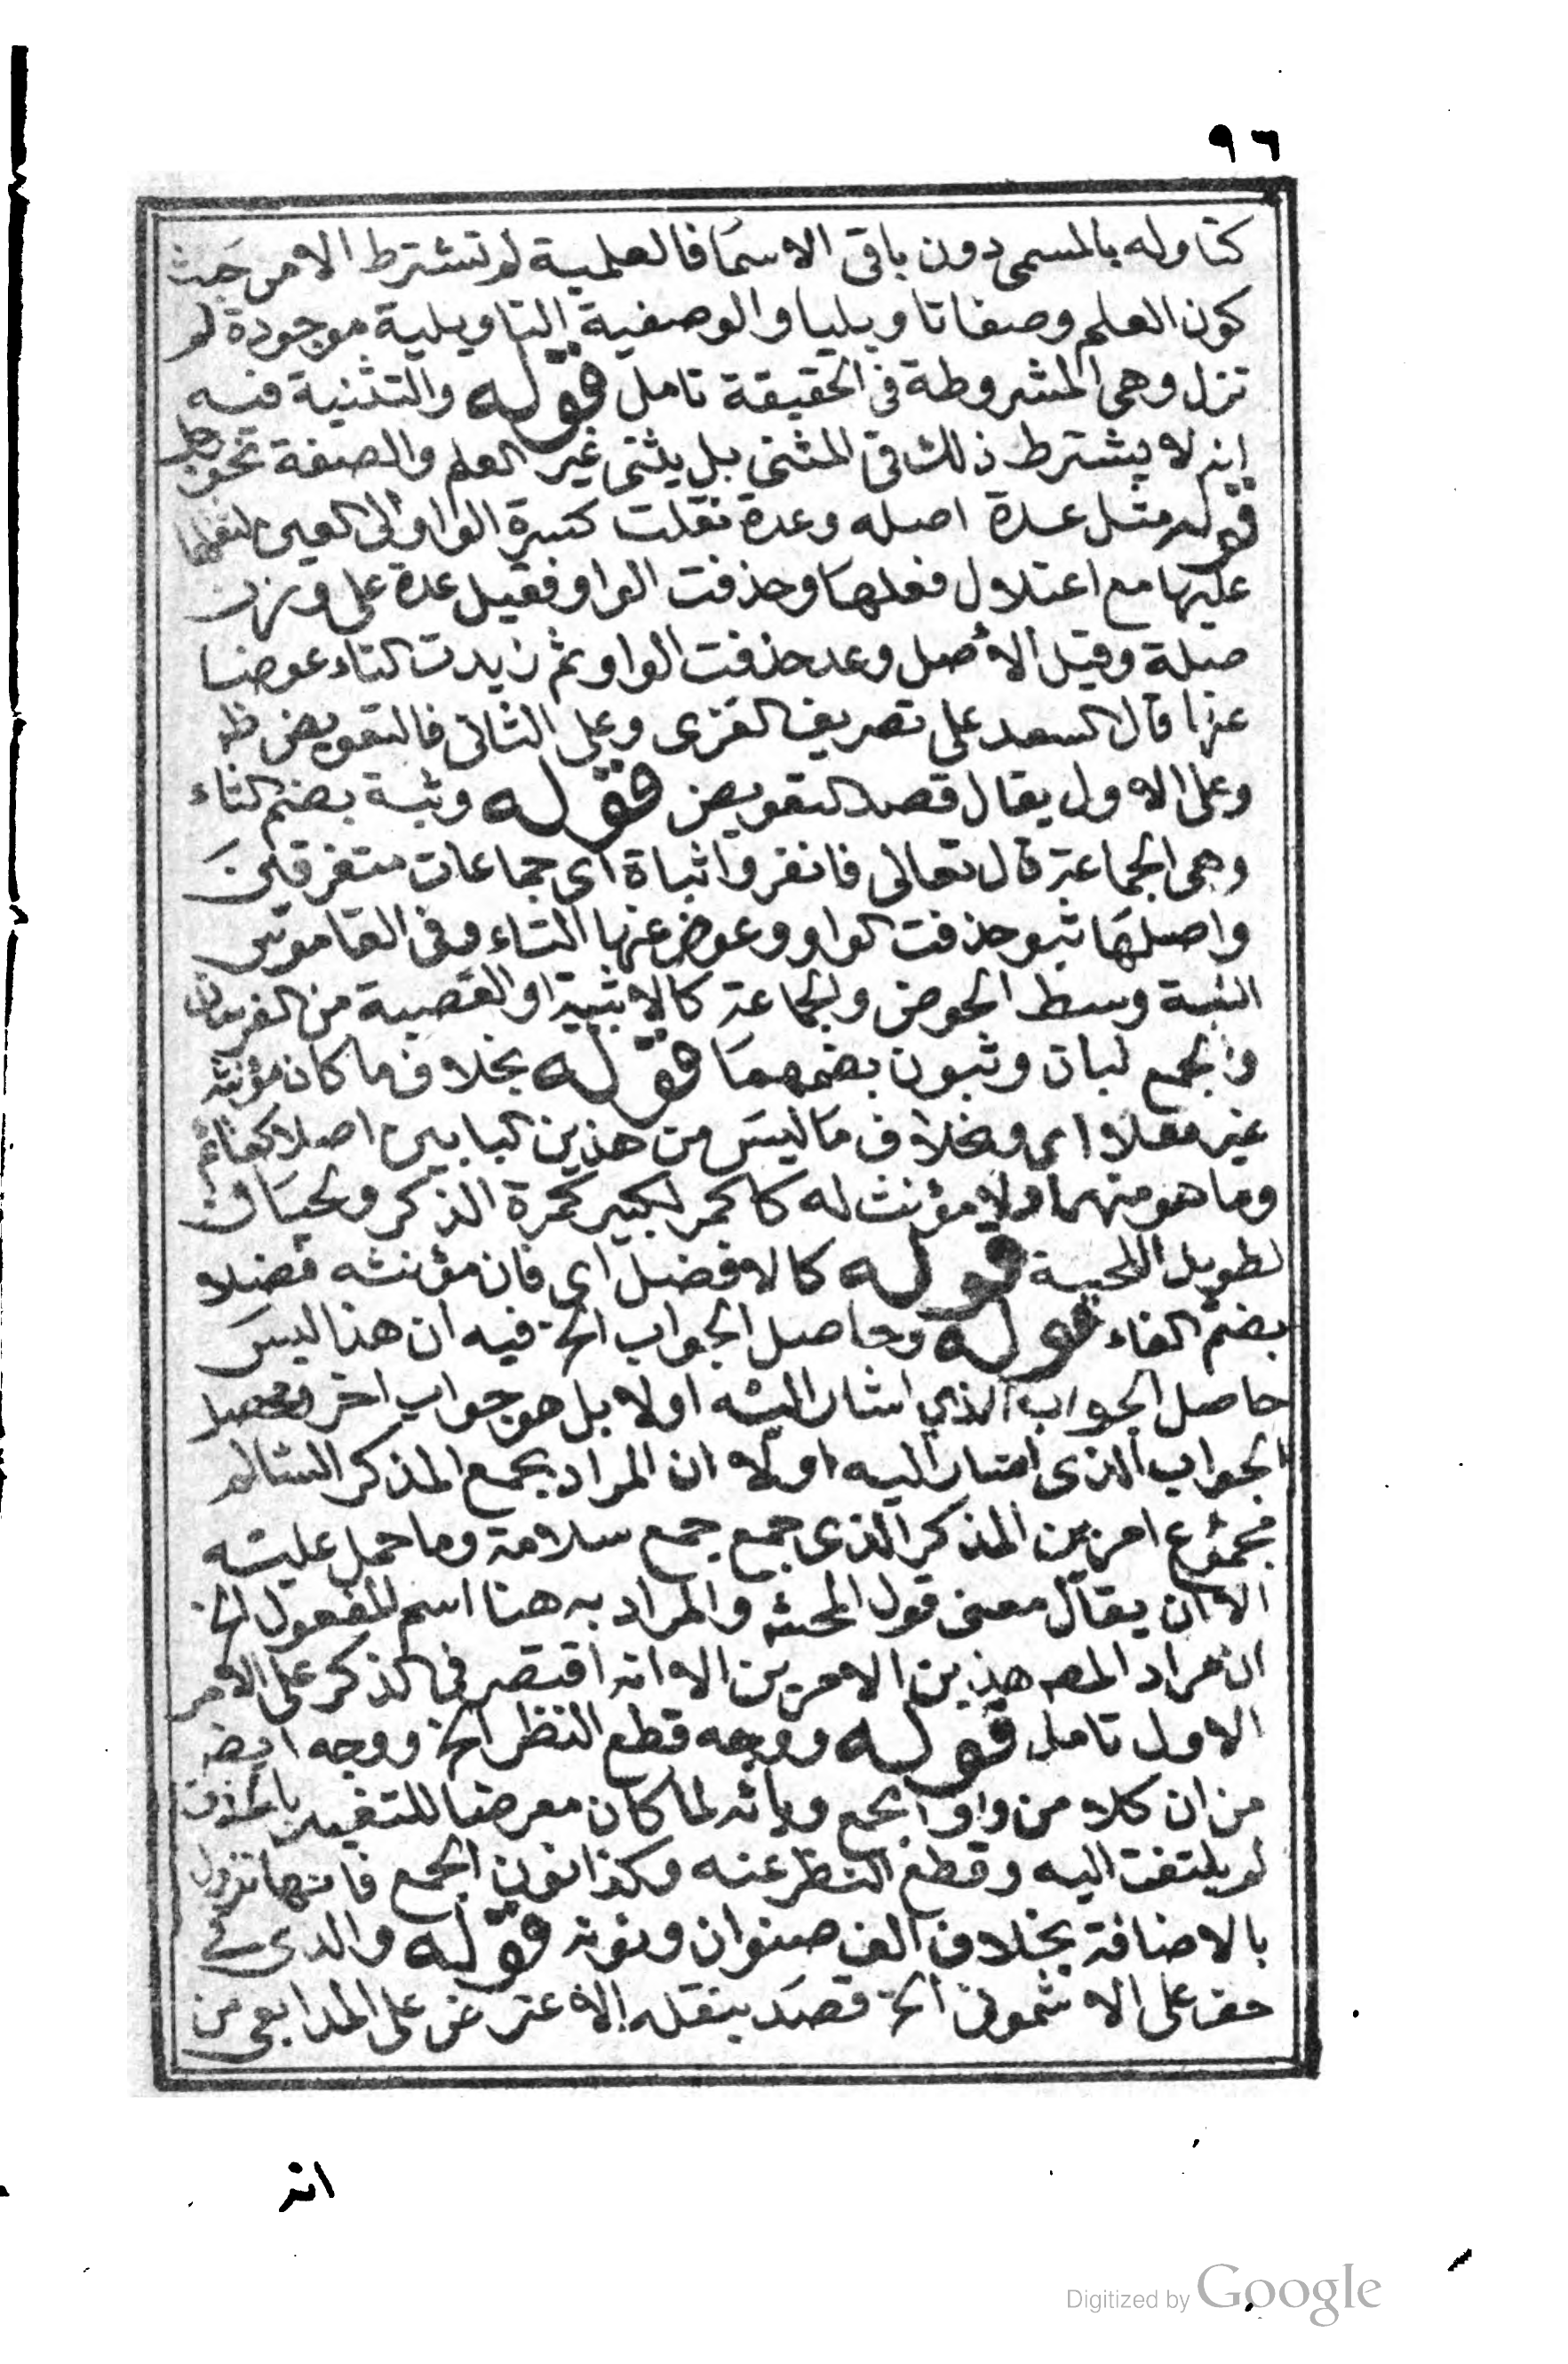 ٩٦
كتاوله بالمسمى دون باقى الاسما فالعلمية لم تشترط الا من حيث
كون العلم وصفا تاويليا والوصفية التاويلية موجودة لم
تزل وهى المشروطة فى الحقيقة تامل قوله والتثنية فيه
انه لا يشترط ذلك فى المثنى بل يثنى غير العلم والصفة نحو رجل
قوله مثل عدة اصله وعدة نقلت كسرة الواو الى العين لثقلها
عليها مع اعتلال فعلها وحذفت الواو فقيل عدة على وزن
صلة وقيل الأصل وعد حذفت الواو ثم زيدت التاء عوضا
عنها قال السعد على تصريف العزى وعلى الثانى فالتعويض ظه
وعلى الاول يقال قصد التعويض قوله وثبة بضم الثاء
وهى الجماعة قال تعالى فانفروا ثباة اى جماعات متفرقين
واصلها ثبو حذفت الواو وعوض عنها التاء وفى القاموس
الثبة وسط الحوض والجماعة كالاثبية او العصبة من الفرسان
والجمع ثبات وثبون بضمهما قوله بخلاف ما كان مؤنثه
غير فعلا اى وبخلاف ما ليس من هذين البابين اصلا كقائم
وما هو منهما ولا مؤنث له كاكمر لكبير كمرة الذكر ولحيان
لطويل اللحية قوله كالافضل اى فان مؤنثه فضلا
بضم الفاء قوله وحاصل الجواب الخ فيه ان هنا ليس
حاصل الجواب الذي اشار اليه اولا بل هو جواب اخر ومحصل
الجواب الذى اشار اليه اولا ان المراد بجمع المذكر السالم
مجموع امرين المذكر الذى جمع جمع سلامة وما حمل عليه
الا ان يقال معنى قول المحشه والمراد به هنا اسم المفعول الخ
ان مراد المص هذين الامرين الا انه اقتصر فى الذكر على الامر
الاول تامل قوله ووجه قطع النظر الخ ووجه ايضه
من ان كلا من واو الجمع ويائه لما كان معرضا للتغيير بالحذف
لم يلتفت اليه وقطع النظر عنه وكذا نون الجمع فانها تزول
بالاضافة بخلاف الف صنوان ونونه قوله والذى فى
حف على الاشمونى الخ قصد بنقله الاعتراض على المدابغى من
انه
Digitized by Google